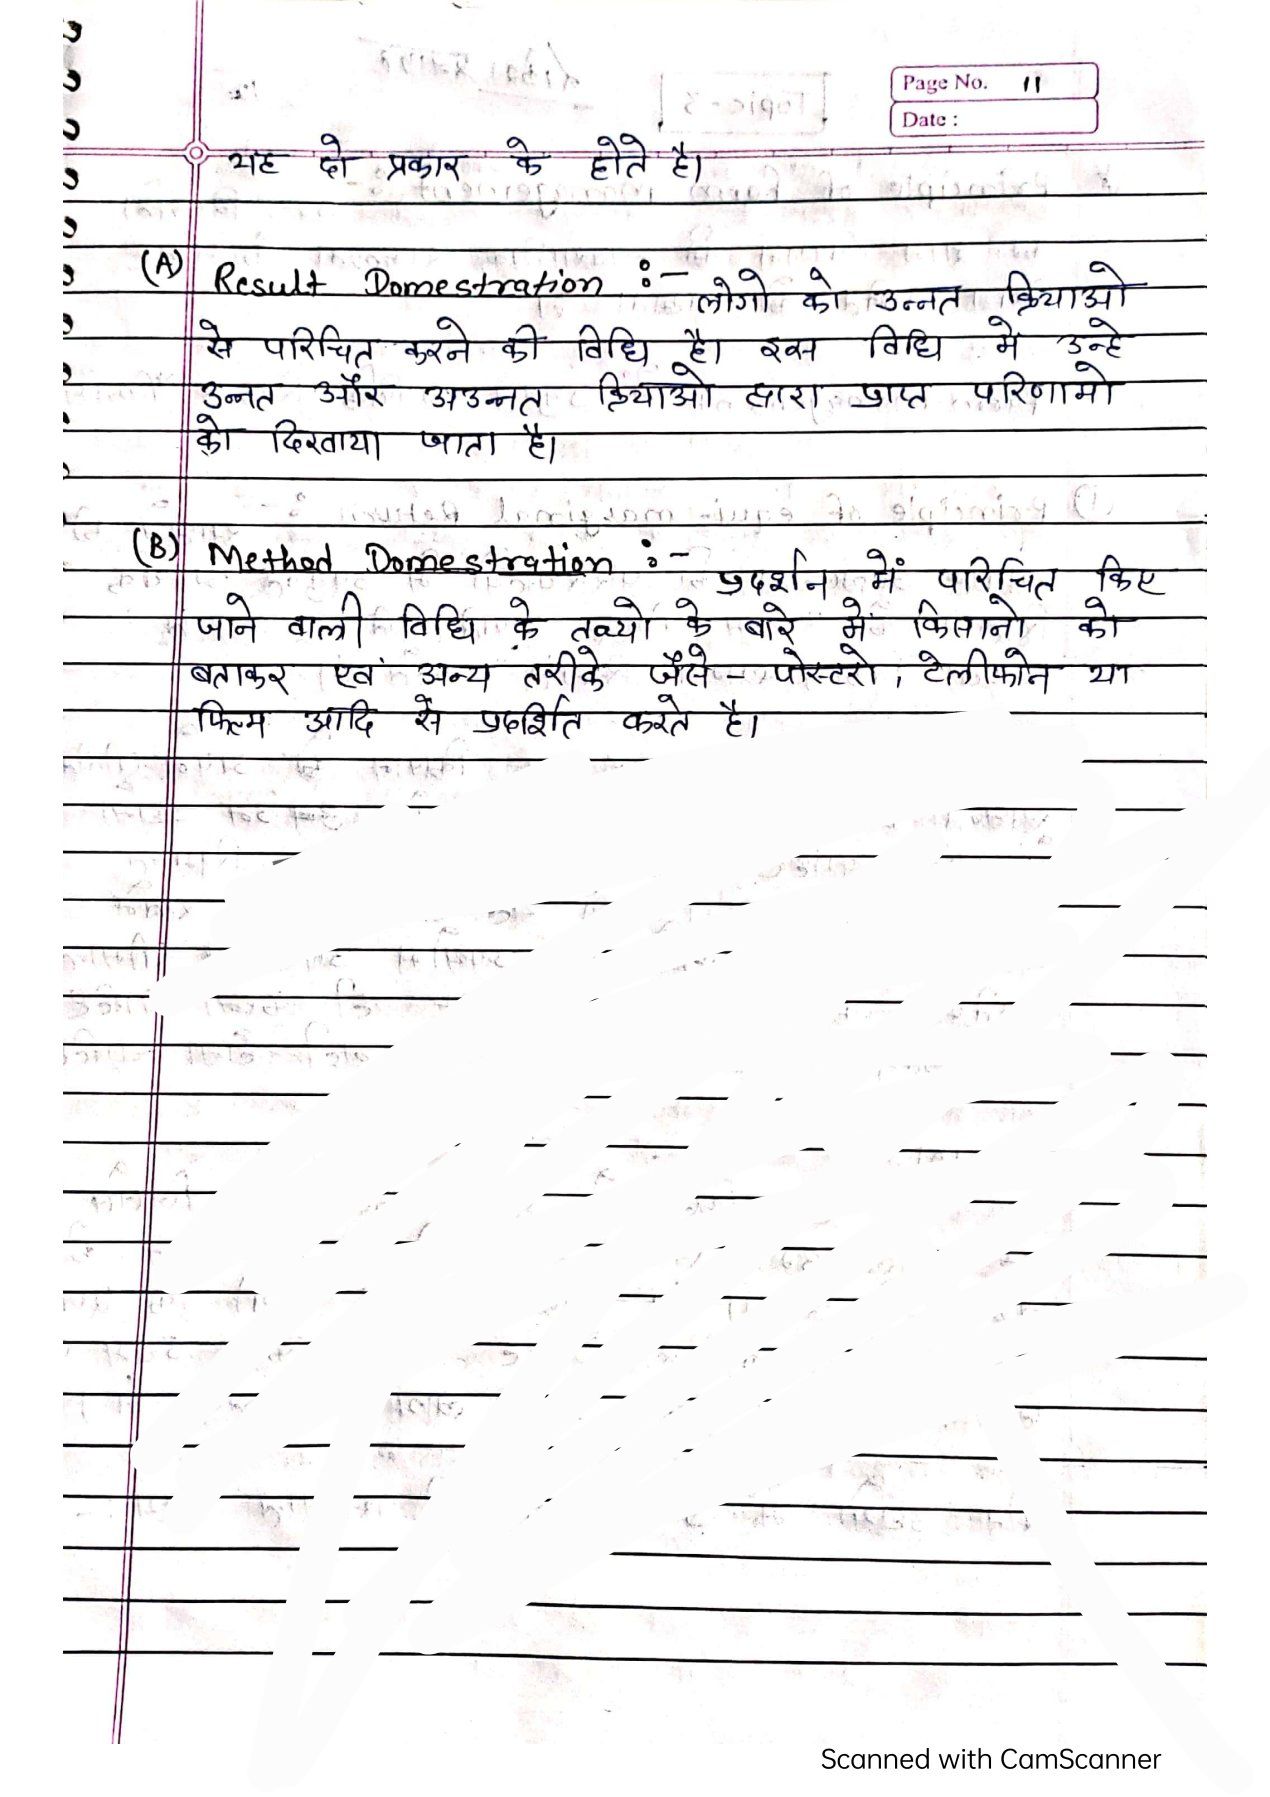 Page No. 11
Date :
यह दो प्रकार के होते है।
(A) Result Domestration :- लोगो को उन्नत क्रियाओ
से परिचित करने की विधि है। इस विधि मे उन्हे
उन्नत और अउन्नत क्रियाओ द्वारा प्राप्त परिणामो
को दिखाया जाता है।
(B) Method Domestration :- प्रदर्शन में परिचित किए
जाने वाली विधि के तथ्यो के बारे मे किसानो को
बताकर एवं अन्य तरीके जैसे - पोस्टरो, टेलीफोन या
फिल्म आदि से प्रदर्शित करते है।
Scanned with CamScanner